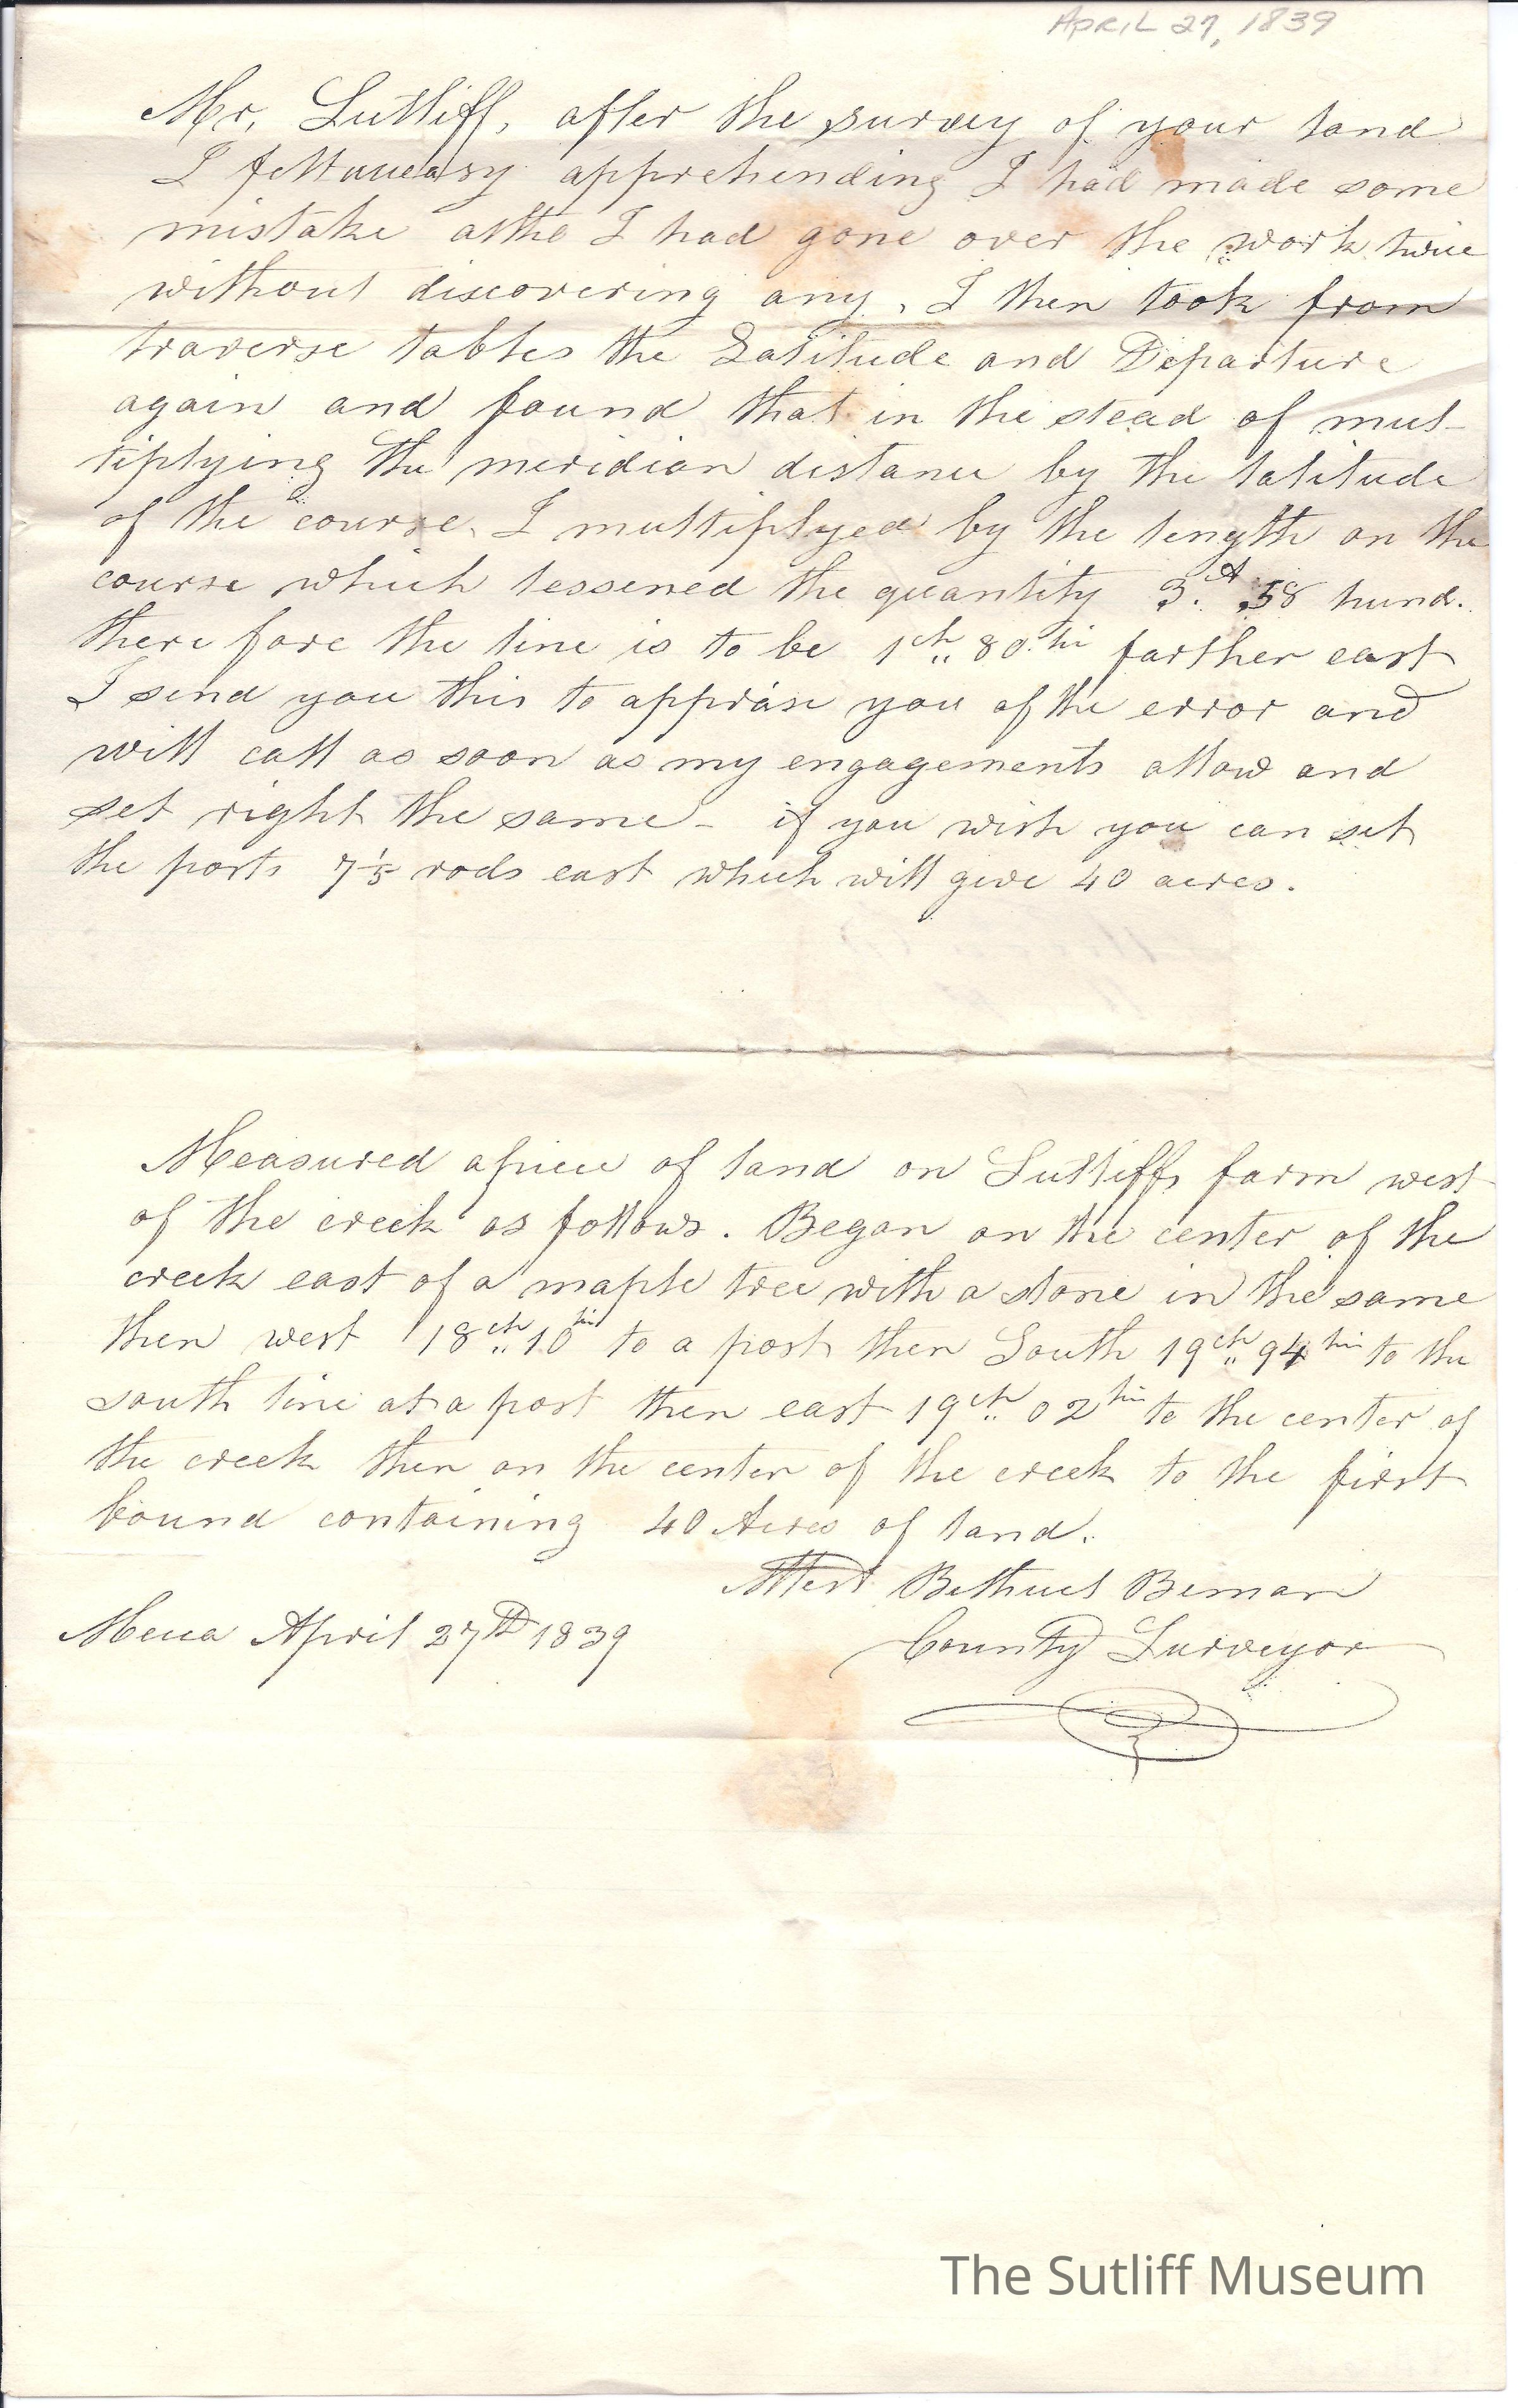 APRIL 27, 1839
Mr. Sutliff, after the survey of your land
I felt uneasy apprehending I had made some
mistake altho I had gone over the work twice
without discovering any, I then took from
traverse tables the Latitude and Departure
again and found that in the stead of mul-
tiplying the meridian distance by the latitude
of the course, I multiplyed by the length on the
course which lessened the quantity 3.A 58 hund.
there fore the line is to be 1ch 80 li farther east
I send you this to apprise you of the error and
will call as soon as my engagements allow and
set right the same - if you wish you can set
the posts 7 1/5 rods east which will give 40 acres.
Measured a piece of land on Sutliffs farm west
of the creek as follows. Began on the center of the
creek east of a maple tree with a stone in the same
then west 18ch 10 li to a post then South 19ch 94 li to the
south line at a post then east 19ch 02 li to the center of
the creek then on the center of the creek to the first
bound containing 40 Acres of land.
Attest Bethuel Beman
Mecca April 27th 1839
County Surveyor
The Sutliff Museum